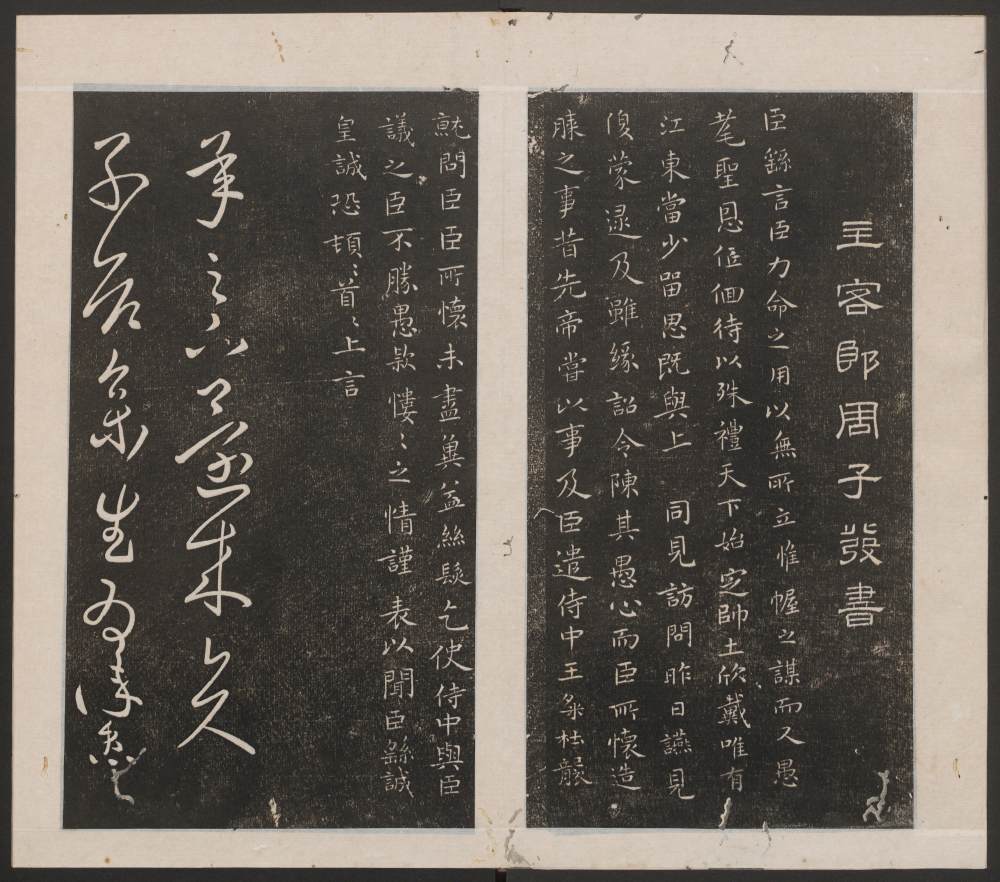 主客郎周子發書
臣繇言臣力命之用以無所立惟幄之謀而又愚
耄聖恩低佪待以殊禮天下始定帥土欣戴唯有
江東當少留思既與上 同見訪問昨日讌見
復蒙逮及雖緣詔令陳其愚心而臣所懷造
膝之事昔先帝嘗以事及臣遣侍中王粲杜襲
就問臣臣所懷未盡冀益絲髮乞使侍中與臣
議之臣不勝愚款慺〻之情謹 表以聞臣繇誠
皇誠恐頓〻首〻上言